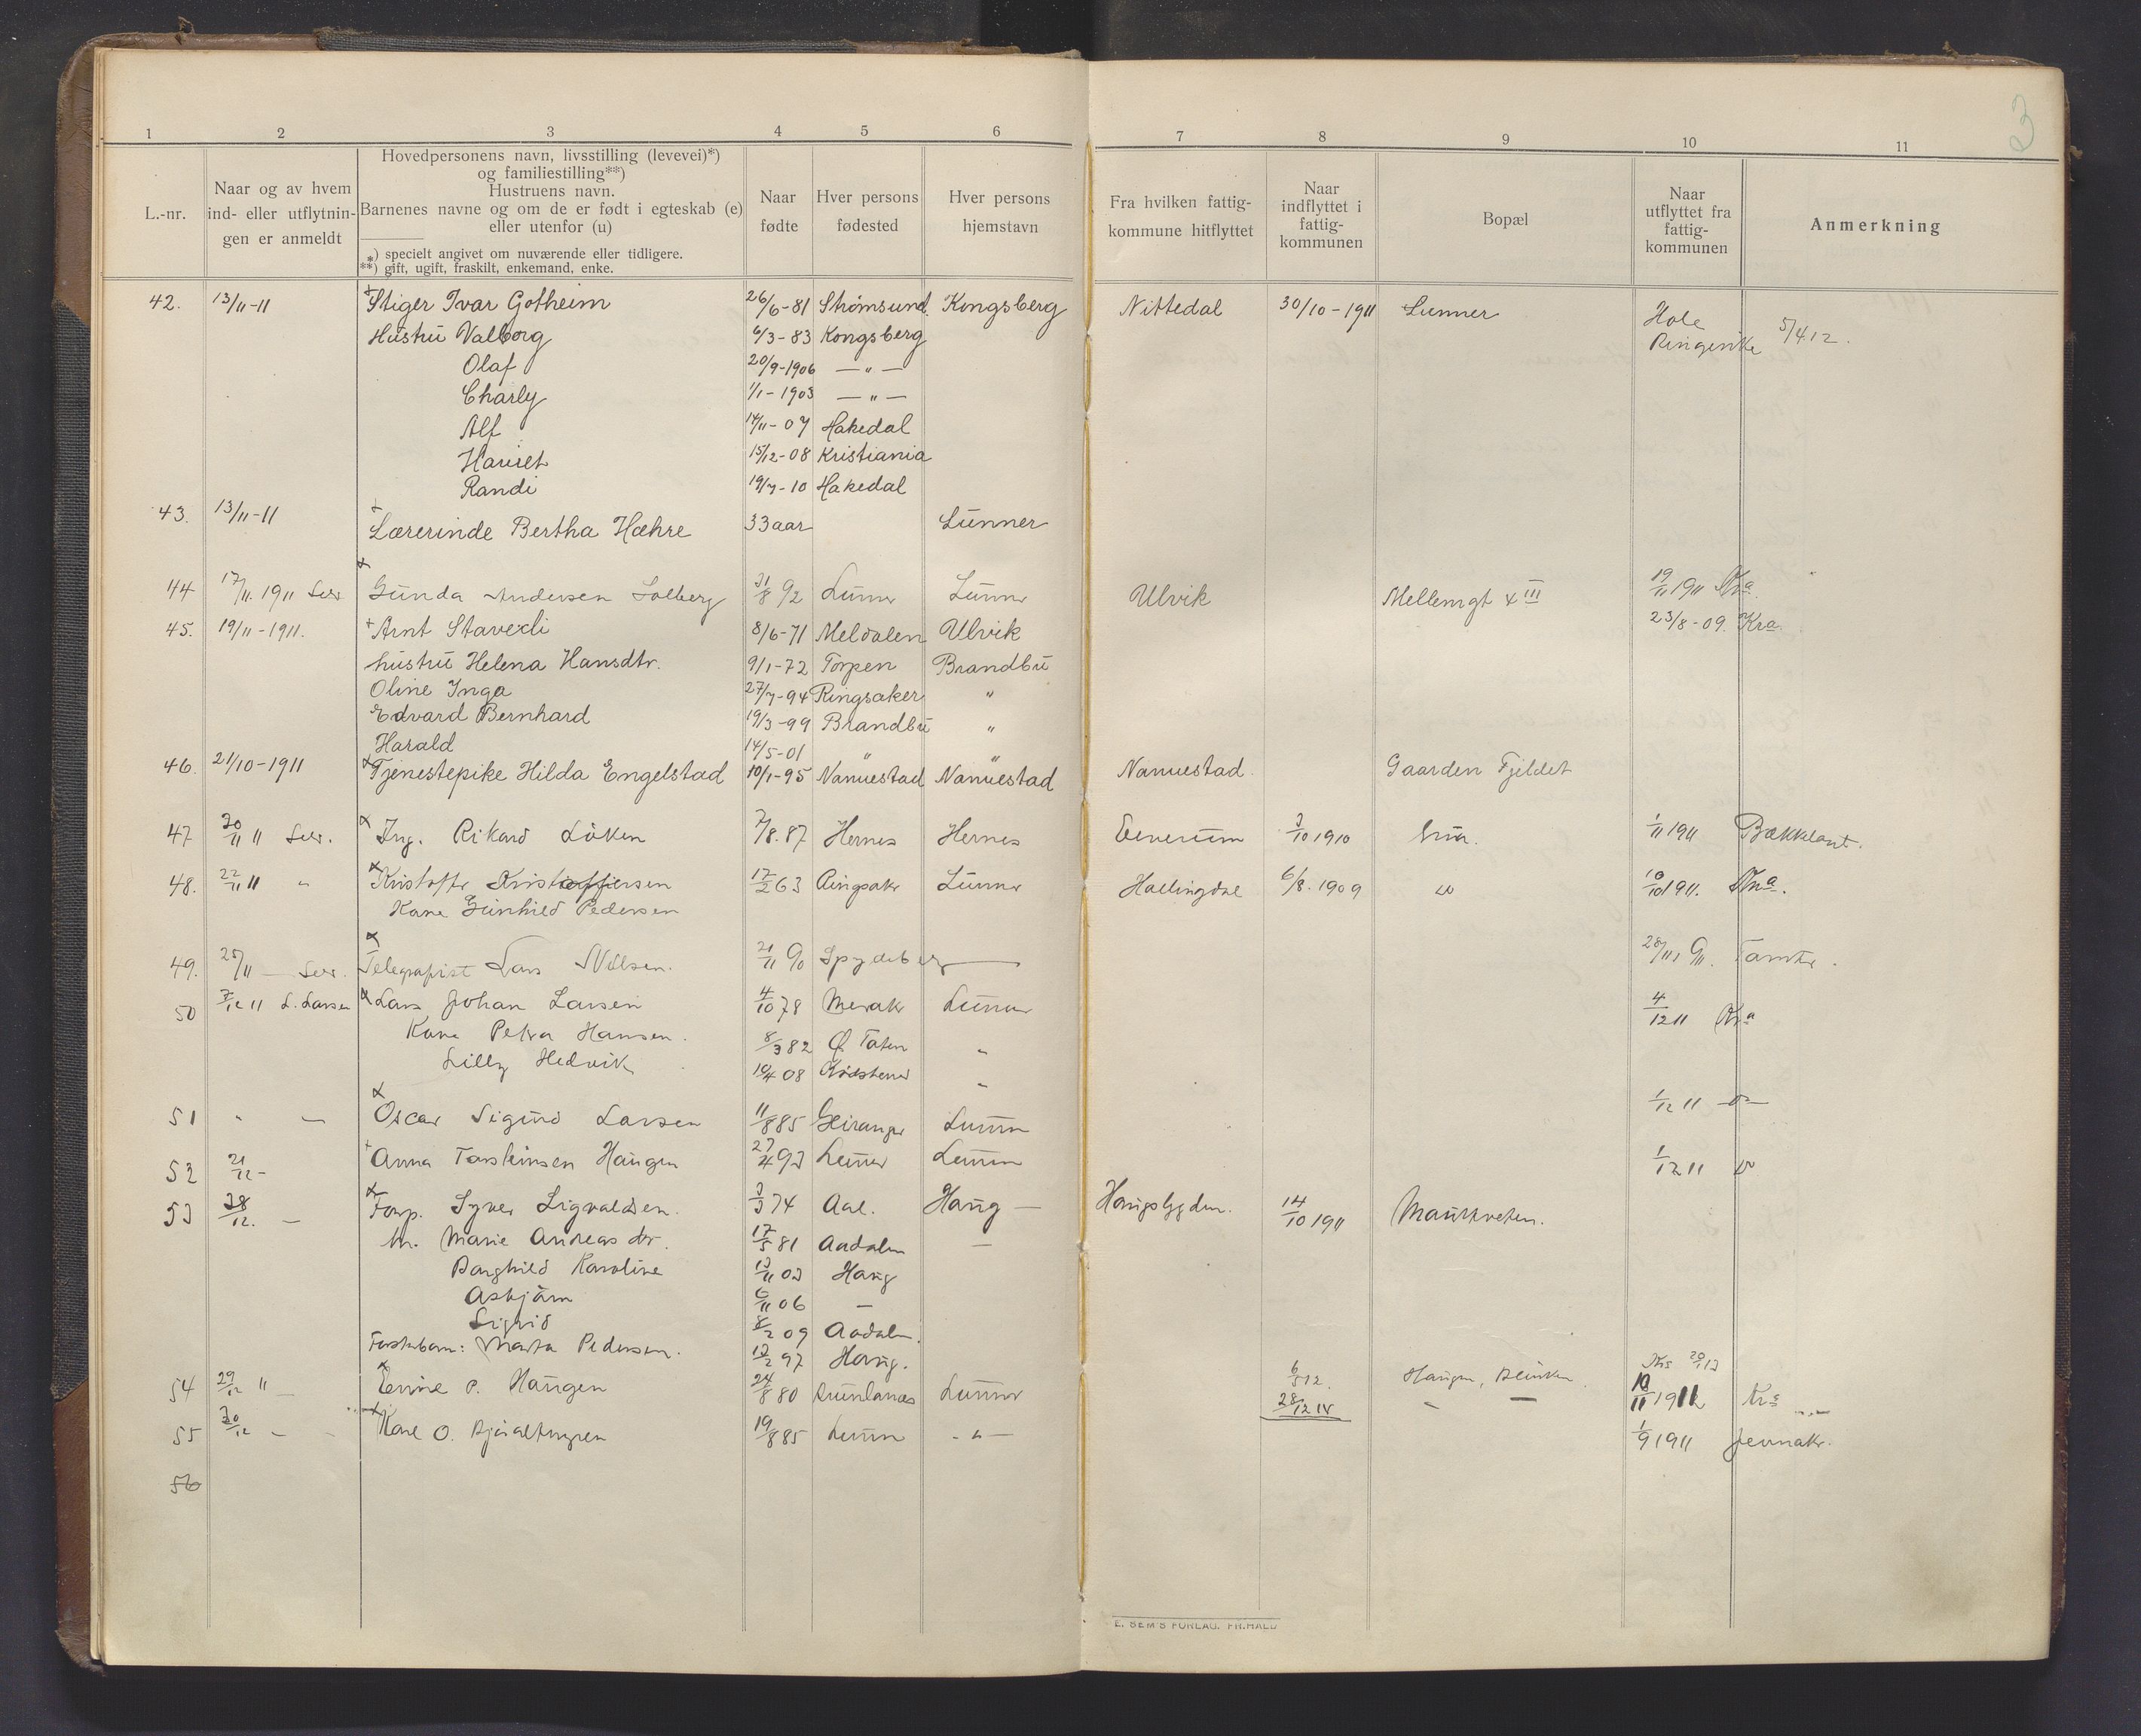 3
1 2 3 4 5 6 7 8 9 10 11
L.-nr.
Naar og av hvem
ind- eller utflytnin-
gen er anmeldt
Hovedpersonens navn, livsstilling (levevei)*)
og familiestilling**)
Hustruens navn.
Barnenes navne og om de er født i egteskab (e)
eller utenfor (u)
*) specielt angivet om nuværende eller tidligere.
**) gift, ugift, fraskilt, enkemand, enke.
Naar
fødte
Hver persons
fødested
Hver persons
hjemstavn
Fra hvilken fattig-
kommune hitflyttet
Naar
indflyttet i
fattig-
kommunen
Bopæl
Naar
utflyttet fra
fattig-
kommunen
Anmerkning
42. 13/11-11 Stiger Ivar Gotheim 26/6-81 Strømsund. Kongsberg Nittedal 30/10-1911 Lunner Hole Ringerike 5/4 12.
Hustru Valborg 6/3-83 Kongsberg
Olaf 20/9-1906 — " —
Charly 1/1-1903 — " —
Alf 14/11-07 Hakedal
Harriet 15/12-08 Kristiania
Randi 19/7-10 Hakedal
43. 13/11-11 Lærerinde Bertha Hæhre 33 aar Lunner
44 17/11. 1911 Gunda Andersen Solberg 31/8 92 Lunner Lunner Ulvik Mellemgt 4 III 19/11 1911 Kra.
45. 19/11-1911. Arnt Stavexli 8/6-71 Meldalen Ulvik 23/8-09. Kra.
hustru Helena Hansdtr. 9/1-72 Torpen Brandbu
Oline Inga 27/7-94 Ringsaker "
Edvard Bernhard 19/3-99 Brandbu "
Harald 14/5-01 " "
46. 21/10-1911 Tjenestepike Hilda Engelstad 10/1-95 Nannestad Nannestad Nannestad Gaarden Fjeldet
47 30/11 11 Ing. Rikard Löken 7/8. 87 Hernes Hernes Elverum 3/10 1910 1/11 1911 Bækkelaut.
48. 22/11 11 " Kristoffer Kristoffersen 17/2 63 Ringsaker Lunner Hallingdal 6/8. 1909 10/10 1911. Kra.
Kone Gunhild Pedersen
49. 25/11 — Telegrafist Lars Nilsen. 21/11 90 Spydeberg — 28/11
50 7/12 11 L. Larsen Lars Johan Larsen 4/10 78 Merak Lunner 4/12 11 Kra
Kone Petra Hansen. 8/3 82 Ø. Toten "
Lilly Hedvik 10/4 08 "
51 " — Oscar Sigurd Larsen 11/8 85 Geiranger Lunner 1/12 11
52 21/12 - Anna Torsteinsen Haugen 27/4 93 Lunner Lunner 1/12 11
53 28/12. — Forp. Syver Sigvaldsen. 3/3 74 Aal. Haug — Haugsbygden. 14/10 1911
h. Marie Andreas dtr. 17/5 81 Aadalen —
Borghild Karoline 13/11 03 Haug
Asbjörn 6/11 06 —
Sigrid 8/2 09 Aadalen.
Fosterbarn: Marta Pedersen. 12/2 97 Haug.
54 29/12 " — P. Haugen 24/8 80 Lunner 6/5 12. Haugen 10/11 1912 Kra
28/12 — —
55 30/12 - Kone O. 19/8 85 Lunner - " - 1/9 1911 Jevnaker.
56
E. SEM'S FORLAG. FR.HALD